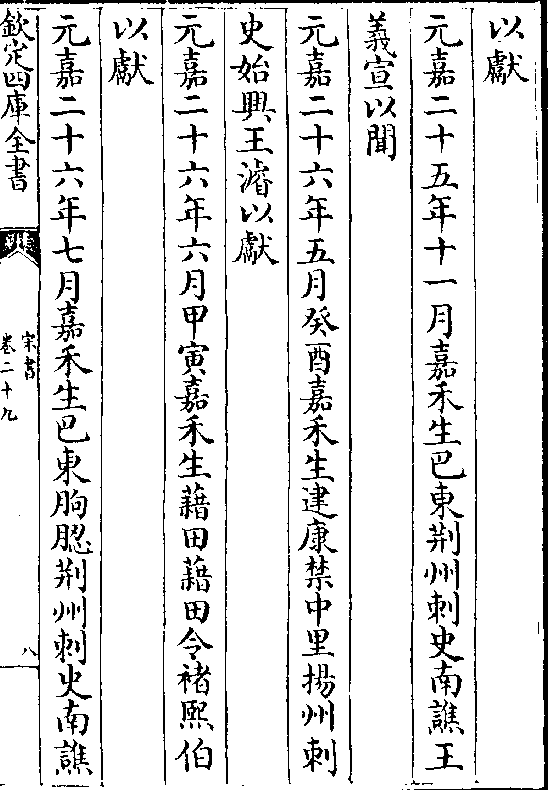 以獻
元嘉二十五年十一月嘉禾生巴東荆州刺史南譙王
義宣以聞
元嘉二十六年五月癸酉嘉禾生建康禁中里揚州刺
史始興王濬以獻
元嘉二十六年六月甲寅嘉禾生藉田藉田令褚熙伯
以獻
元嘉二十六年七月嘉禾生巴東朐䏰荆州刺史南譙
欽定四庫全書
宋書
卷二十九
八